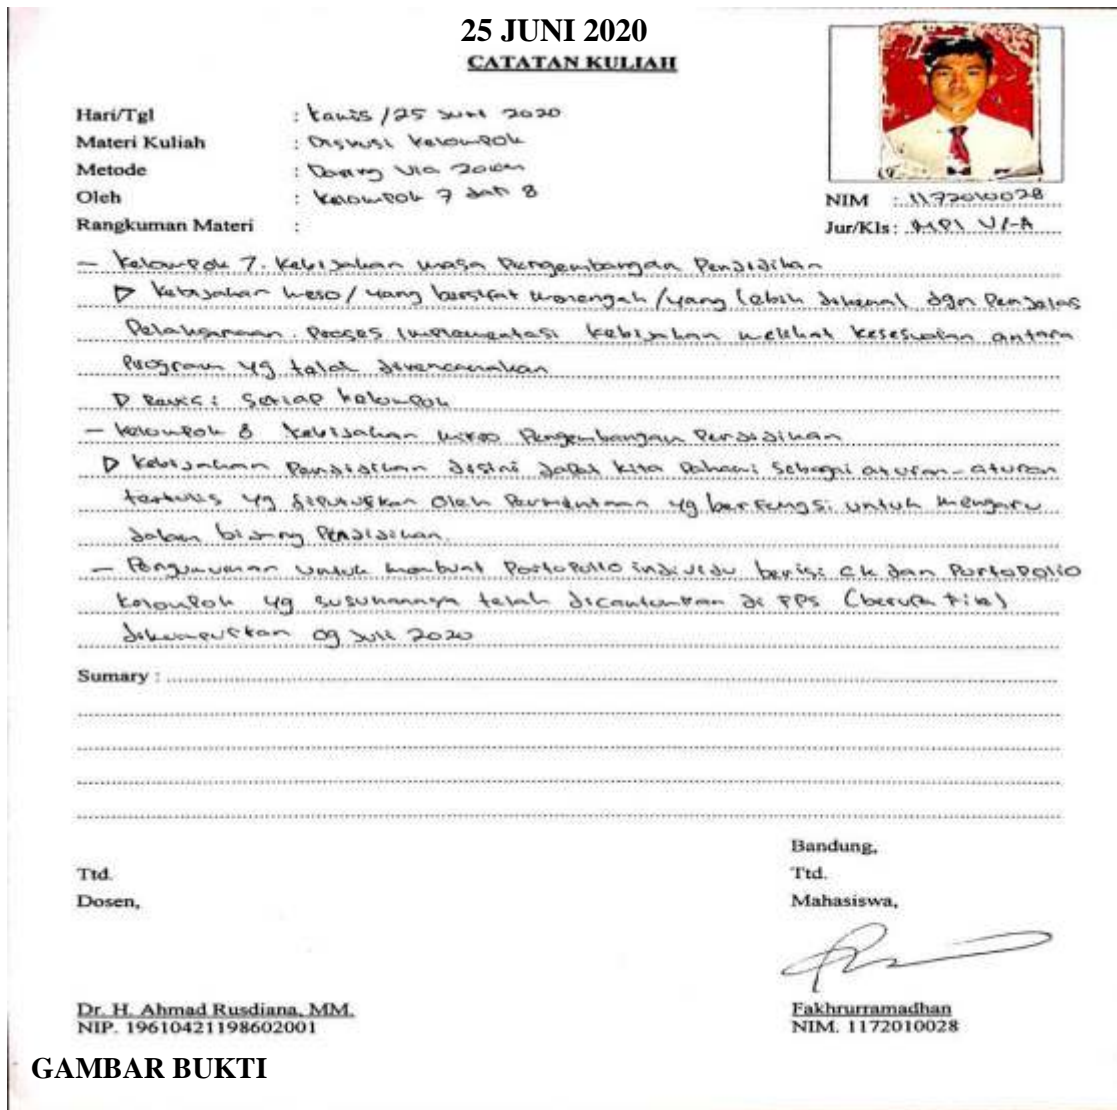 25 JUNI 2020
CATATAN KULIAH
Hari/Tgl : Kamis / 25 Juni 2020
Materi Kuliah : Diskusi Kelompok
Metode : Daring Via Zoom
Oleh : Kelompok 7 dan 8
NIM : 1172010028
Rangkuman Materi :
Jur/Kls : MPI VI-A
- Kelompok 7. Kebijakan Pengembangan Pendidikan
▷ Kebijakan meso / yang bersifat menengah / yang lebih dikenal dgn Penjelas
Pelaksanaan. Proses implementasi kebijakan melihat kesesuaian antara
Program yg telah direncanakan
▷ Revisi : Setiap kelompok
- Kelompok 8 Kebijakan mikro Pengembangan Pendidikan
▷ Kebijakan Pendidikan disini dapat kita Pahami sebagai aturan-aturan
tertulis yg diputuskan oleh yg berfungsi untuk
dalam bidang Pendidikan.
- Pengumuman untuk membuat PortoPolio individu berisi ck dan PortoPolio
Kelompok yg susunannya telah dicantumkan di PPS (berupa File)
dikumpulkan 09 Juli 2020
Sumary :
Bandung,
Ttd.
Ttd.
Dosen,
Mahasiswa,
Dr. H. Ahmad Rusdiana, MM.
Fakhrurramadhan
NIP. 19610421198602001
NIM. 1172010028
GAMBAR BUKTI